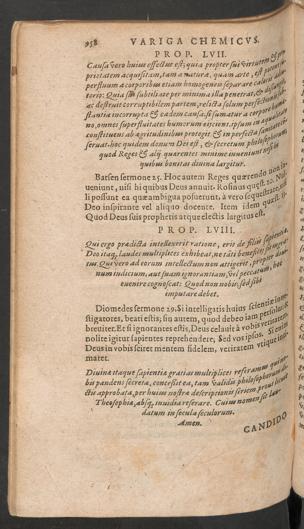 958 VARIGA CHEMICVS.
PROP. LVII.
Causa vero huius effectus est; quia propter sui virtutem & pro-
prietatem acquisitam, tam a natura, quam arte, est potens su-
perfluum a corporibus etiam homogeneum separare caloris adiu-
torio: Quia sua subtilitate per minima illa penetrat, &
ac destruit corruptibilem partem, relicta solum perfecta sub-
stantia incorrupta & eadem causa, si sumatur a corpore huma-
no, omnes superfluitates humorum eijciens, ipsum in sanitate
constituens ab ægritudinibus protegit & in perfecta sanitate con-
seruat. hoc quidem donum Dei est, & secretum philosophorum,
quod Reges & alij quærentes minime inueniunt nisi
quibus bonitas diuina largitur.
Barsen sermone 25. Hoc autem Reges quærendo non in-
ueniunt, nisi hi quibus Deus annuit. Rosinus quæst. 20. Nul-
li possunt ea quæ ambigua posuerunt, a vero sequestrare, nisi
Deo inspirante vel aliquo docente. Item idem quæst.
Quod Deus suis prophetis atque electis largitus est.
PROP. LVIII.
Qui ergo prædicta intellexerit ratione, eris de filijs sapientiæ,
Deo itaq, laudes multiplices exhibeat, ne tali beneficio sit ingra-
tus: Qui vero ad eorum intellectum non attigerit, propter diui-
num indictum, aut suam ignorantiam, vel peccatum, hoc
euenire cognoscat: Quod non nobis, sed sibi
imputare debet.
Diomedes sermone 29. Si intelligatis huius scientiæ inue-
stigatores, beati estis, sin autem, quod debeo iam persoluo &
breuiter. Et si ignorantes estis, Deus celauit à vobis veritatem:
nolite igitur sapientes reprehendere, sed vos ipsos. Si enim
Deus in vobis sciret mentem fidelem, veritatem vtique
maret.
Diuinæ itaque sapientiæ gratias multiplices referamus
bis pandens secreta, concessit ea, tam validis philosophorum di-
ctis approbata, per huius nostræ descriptionis seriem,
Theosophiæ, absq, inuidia reserare. Cuius nomen sit lau-
datum in secula seculorum.
Amen.
CANDIDO